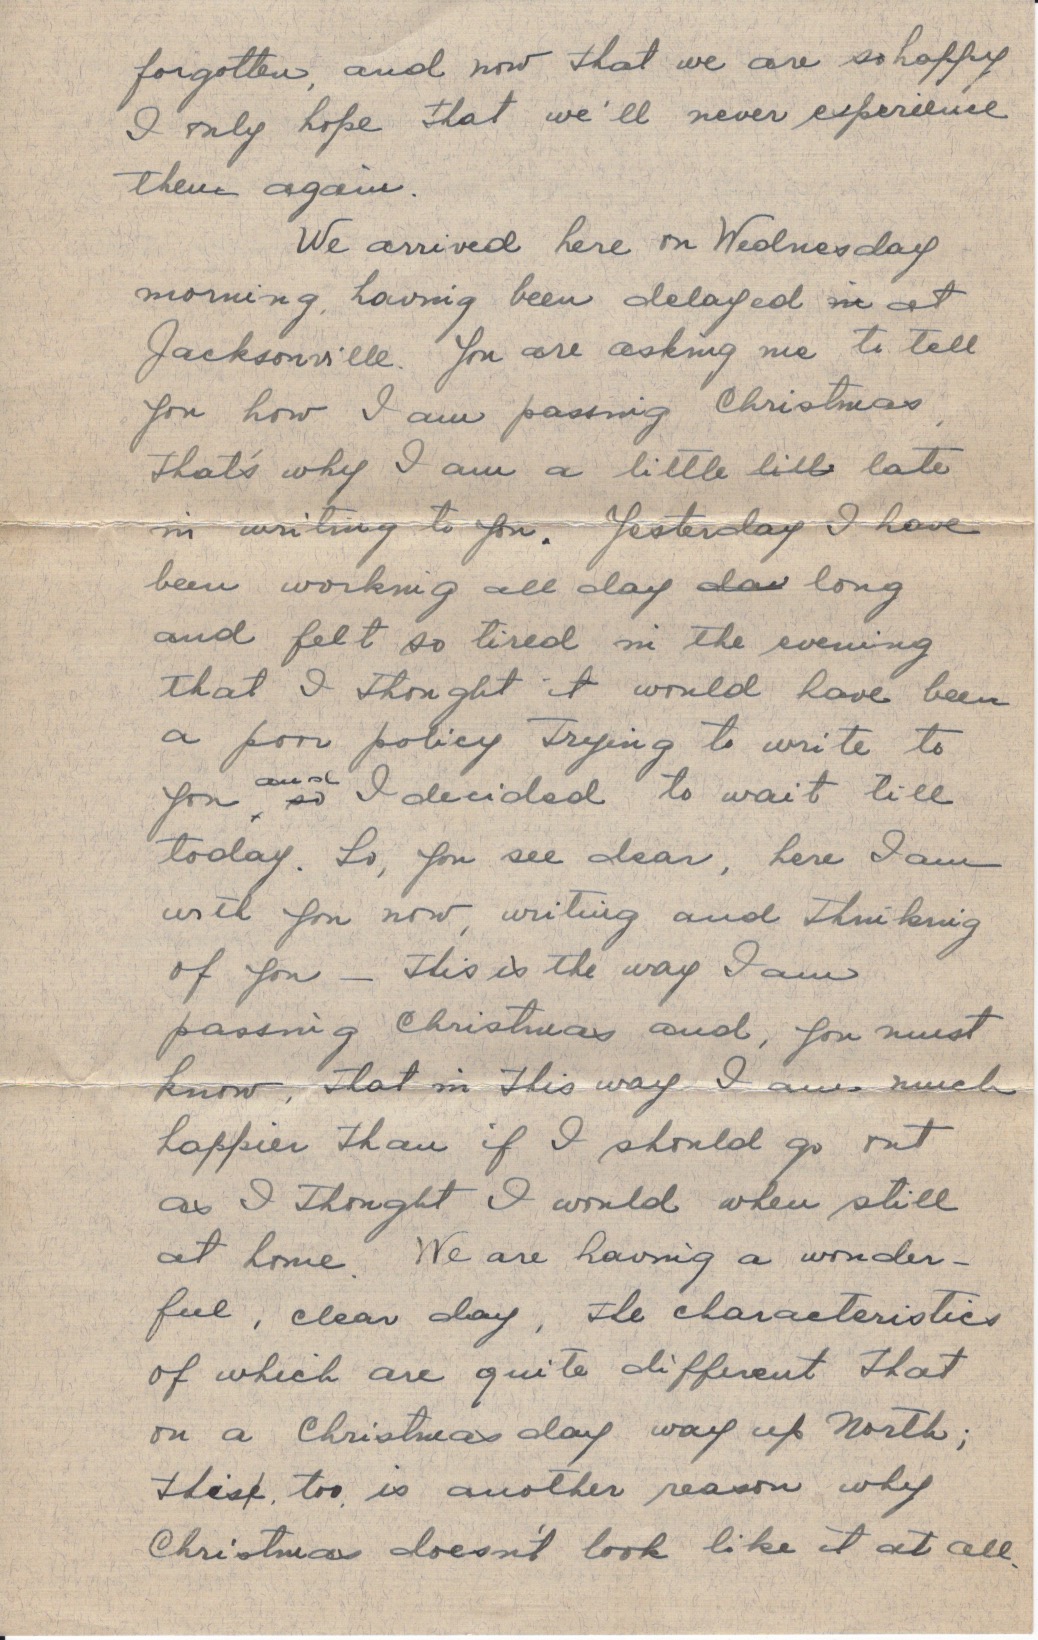 forgotten, and now that we are so happy
I only hope that we'll never experience
them again.
We arrived here on Wednesday
morning, having been delayed in at
Jacksonville. You are asking me to tell
you how I am passing Christmas,
that's why I am a little litt late
in writing to you. Yesterday I have
been working all day day long
and felt so tired in the evening
that I thought it would have been
a poor policy trying to write to
you, and so I decided to wait till
today. So, you see dear, here I am
with you now, writing and thinking
of you – this is the way I am
passing Christmas and, you must
know, that in this way I am much
happier than if I should go out
as I thought I would when still
at home. We are having a wonder-
ful, clear day, the characteristics
of which are quite different that
on a Christmas day way up North;
this, too, is another reason why
Christmas doesn't look like it at all.